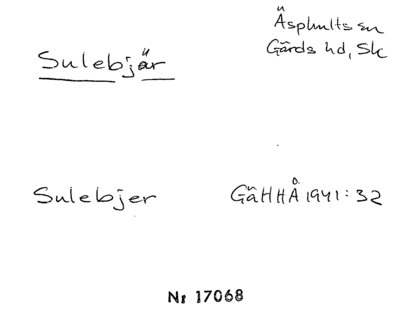 Sulebjär
Äsphults sn
Gärds hd, Sk
Sulebjer
GäHHÅ 1941:32
Nr 17068